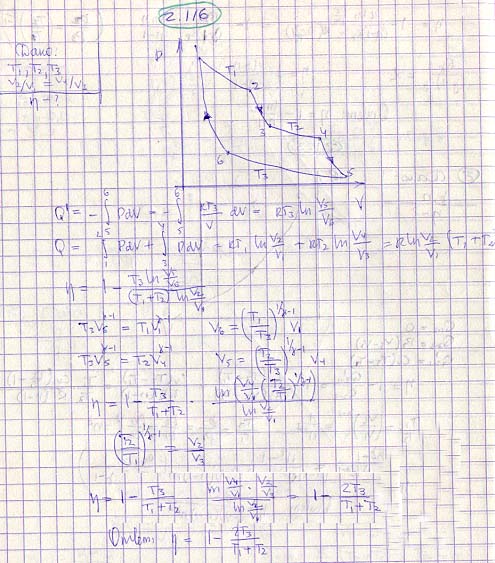 2.116
Дано:
T₁, T₂, T₃
V₂/V₁ = V₄/V₃
η - ?
P
1
T₁
2
3
T₂
4
6
T₃
5
V
Q' = - ∫₅⁶ PdV = - ∫₅⁶ RT₃/V dV = RT₃ ln V₅/V₆
Q = ∫₁² PdV + ∫₃⁴ PdV = RT₁ ln V₂/V₁ + RT₂ ln V₄/V₃ = R ln V₂/V₁ (T₁ + T₂
η = 1 - T₃ ln V₅/V₆ / (T₁+T₂) ln V₂/V₁
T₃V₆^(γ-1) = T₁V₁^(γ-1) V₆ = (T₁/T₃)^(1/γ-1) V₁
T₃V₅^(γ-1) = T₂V₄^(γ-1) V₅ = (T₂/T₃)^(1/γ-1) V₄
η = 1 - T₃/(T₁+T₂) · ln(V₄/V₁ (T₂/T₁)^(1/γ-1)) / ln V₂/V₁
(T₂/T₁)^(1/γ-1) = V₂/V₃
η = 1 - T₃/(T₁+T₂) · ln V₄/V₁ · V₂/V₃ / ln V₂/V₁ = 1 - 2T₃/(T₁+T₂)
Ответ: η = 1 - 2T₃/(T₁+T₂)